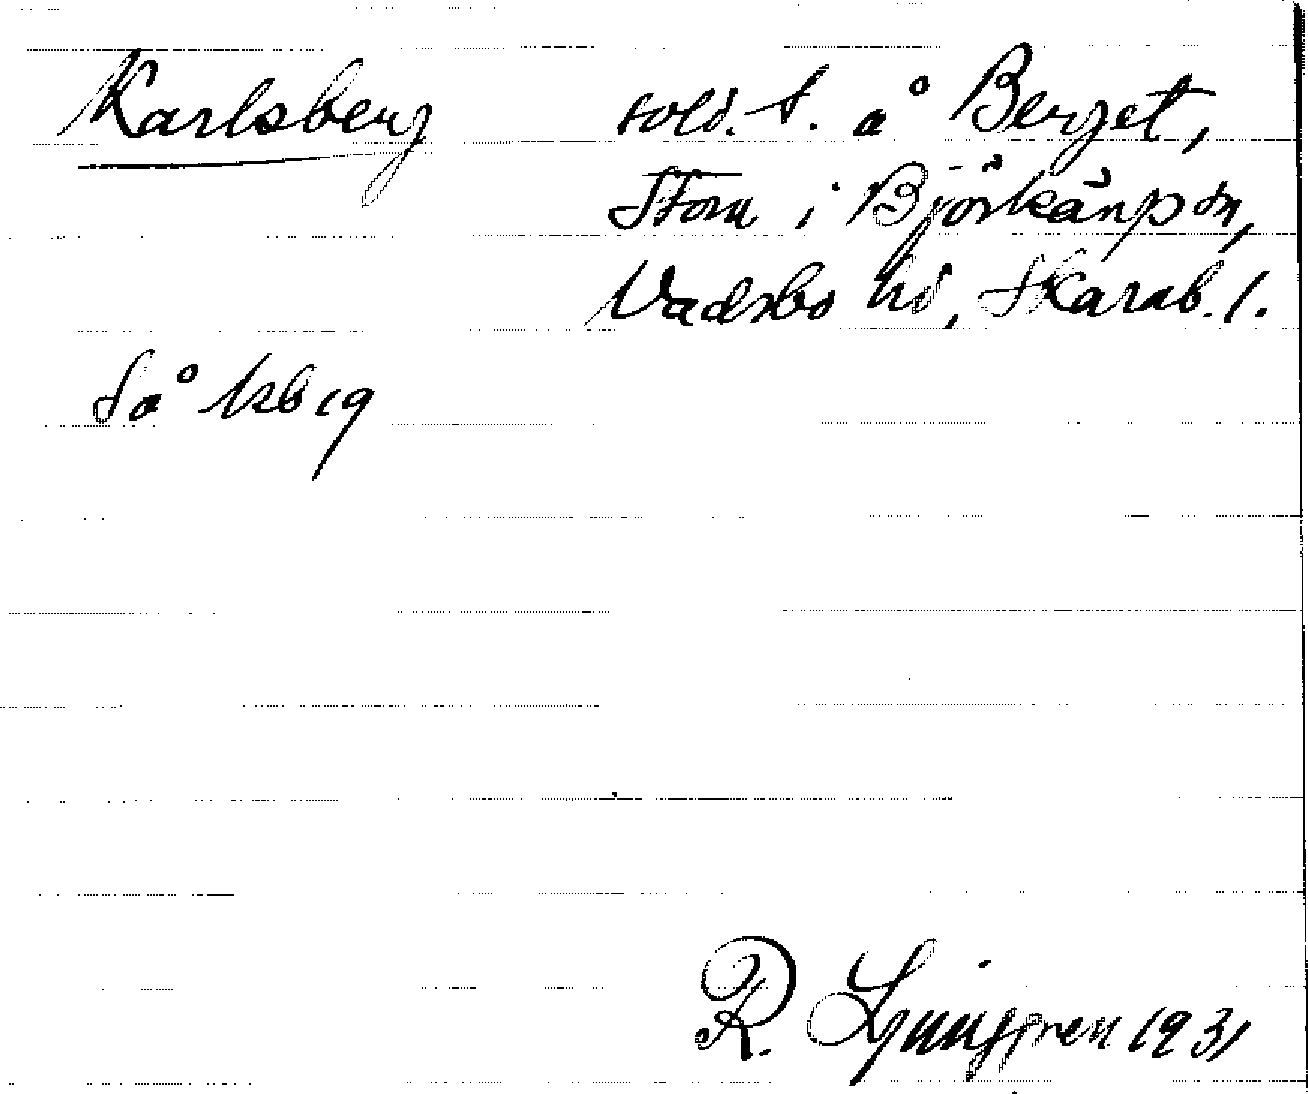 Karlsberg sold. t. å Berget,
Stora i Björkängs sn,
Vadsbo hd, Skarab. l.
Så kbl 19
R. Ljunggren 1931